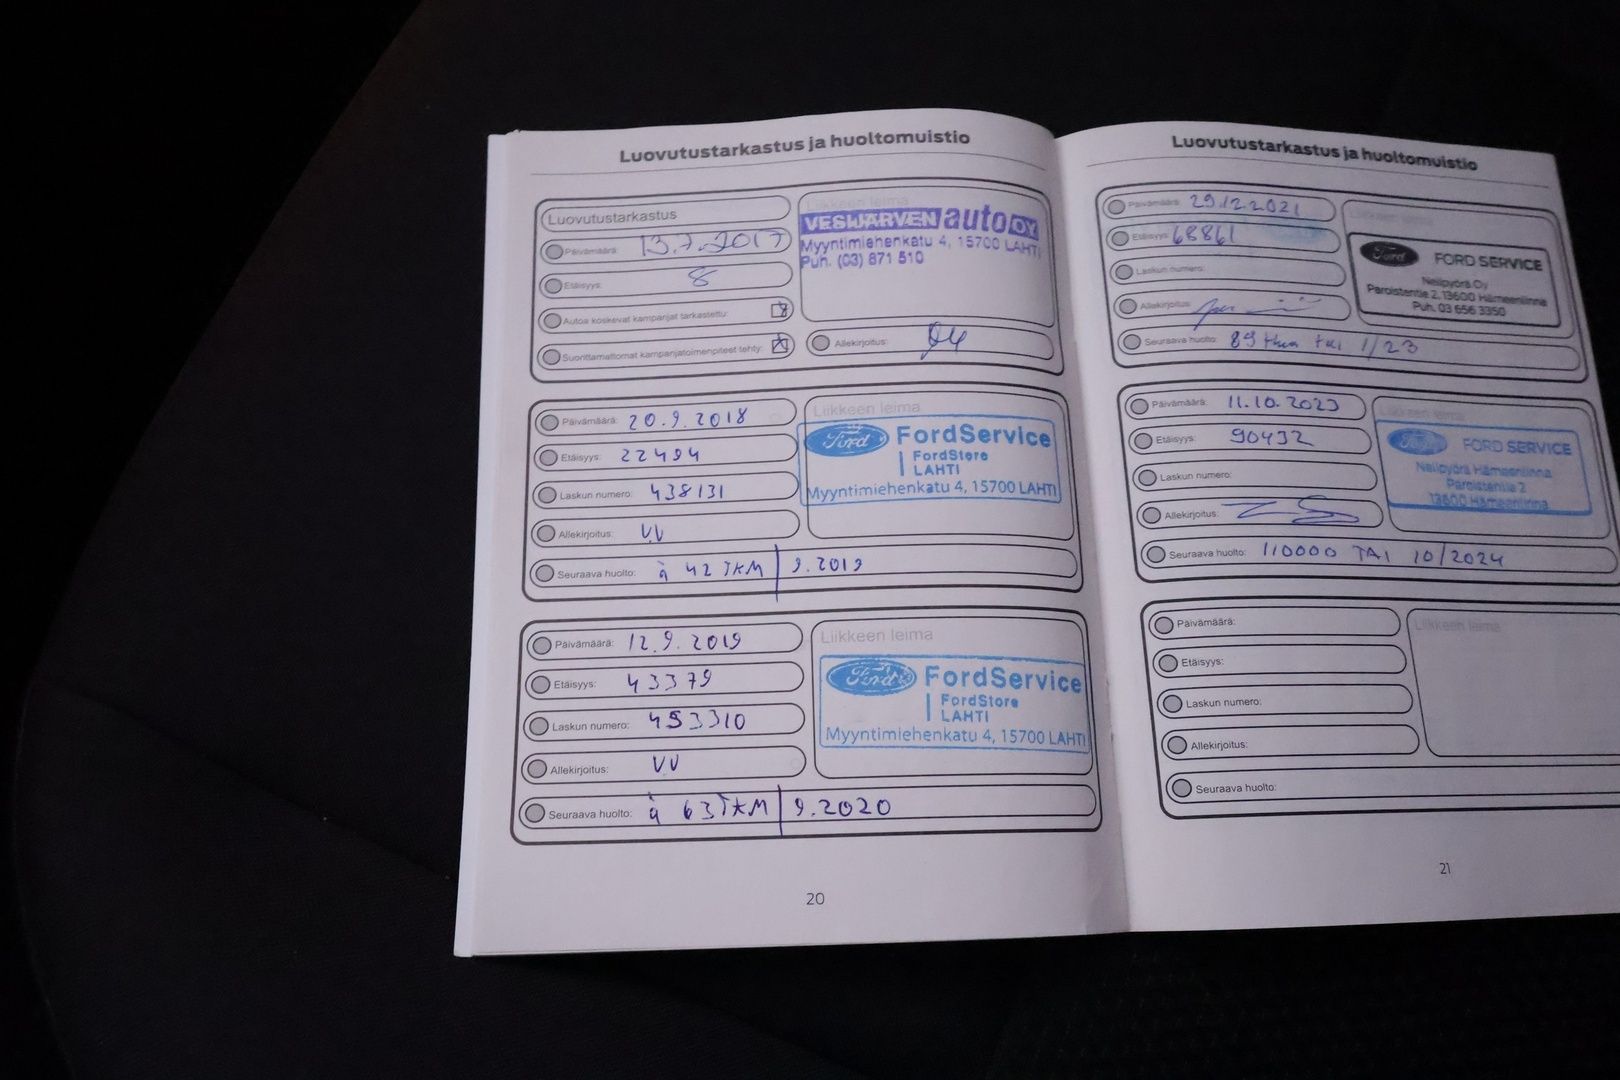 Luovutustarkastus ja huoltomuistio
Luovutustarkastus
Päivämäärä: 13.7.2017
Etäisyys: 8
Autoa koskevat kampanjat tarkastettu:
Suorittamattomat kampanjatoimenpiteet tehty:
Liikkeen leima
VESIJÄRVEN auto OY
Myyntimiehenkatu 4, 15700 LAHTI
Puh. (03) 871 510
Allekirjoitus:
Päivämäärä: 20.9.2018
Etäisyys: 22494
Laskun numero: 438131
Allekirjoitus: VV
Seuraava huolto: à 42 TKM | 9.2019
Liikkeen leima
Ford FordService
FordStore
LAHTI
Myyntimiehenkatu 4, 15700 LAHTI
Päivämäärä: 12.9.2019
Etäisyys: 43379
Laskun numero: 453310
Allekirjoitus: VV
Seuraava huolto: à 63TKM | 9.2020
Liikkeen leima
Ford FordService
FordStore
LAHTI
Myyntimiehenkatu 4, 15700 LAHTI
20
Luovutustarkastus ja huoltomuistio
Päivämäärä: 29.12.2021
Etäisyys: 68861
Laskun numero:
Allekirjoitus:
Seuraava huolto: 89 tkm tai 1/23
Liikkeen leima
Ford FORD SERVICE
Nelipyörä Oy
Paroistentie 2, 13600 Hämeenlinna
Puh. 03 656 3350
Päivämäärä: 11.10.2023
Etäisyys: 90432
Laskun numero:
Allekirjoitus:
Seuraava huolto: 110000 TAI 10/2024
Liikkeen leima
Ford FORD SERVICE
Nelipyörä Hämeenlinna
Paroistentie 2
13600 Hämeenlinna
Päivämäärä:
Etäisyys:
Laskun numero:
Allekirjoitus:
Seuraava huolto:
Liikkeen leima
21